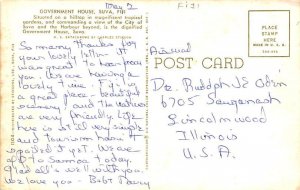 May 2
Fiji
GOVERNMENT HOUSE, SUVA, FIJI
Situated on a hilltop in magnificent tropical
gardens, and commanding a view of the City of
Suva and the Harbour beyond, is the dignified
Government House, Suva
So many thanks for
your lovely letter. It
was nice to hear from
you. We are having a
lovely time. Fiji is
a great place. Beautiful
scenery and the natives
are very friendly. Life
here is still very simple
and tourism hasn't
spoiled it yet. We are
off to Samoa today.
Glad all's well with you.
We love you - Bob + 
Airmail
POST CARD
PLACE
STAMP
HERE
Dr. Rudolph E.
6705 Sauganash
Lincolnwood
Illinois
U.S.A.